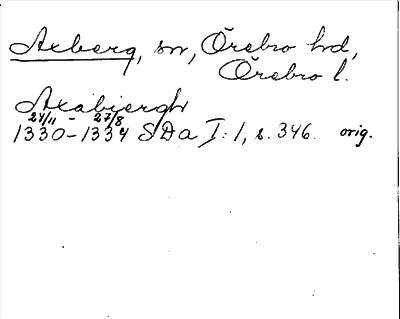 Axberg, sn, Örebro hd,
Örebro l.
Axabiergh
24/11 - 27/8
1330-1334 SDa I:1, s. 346. orig.